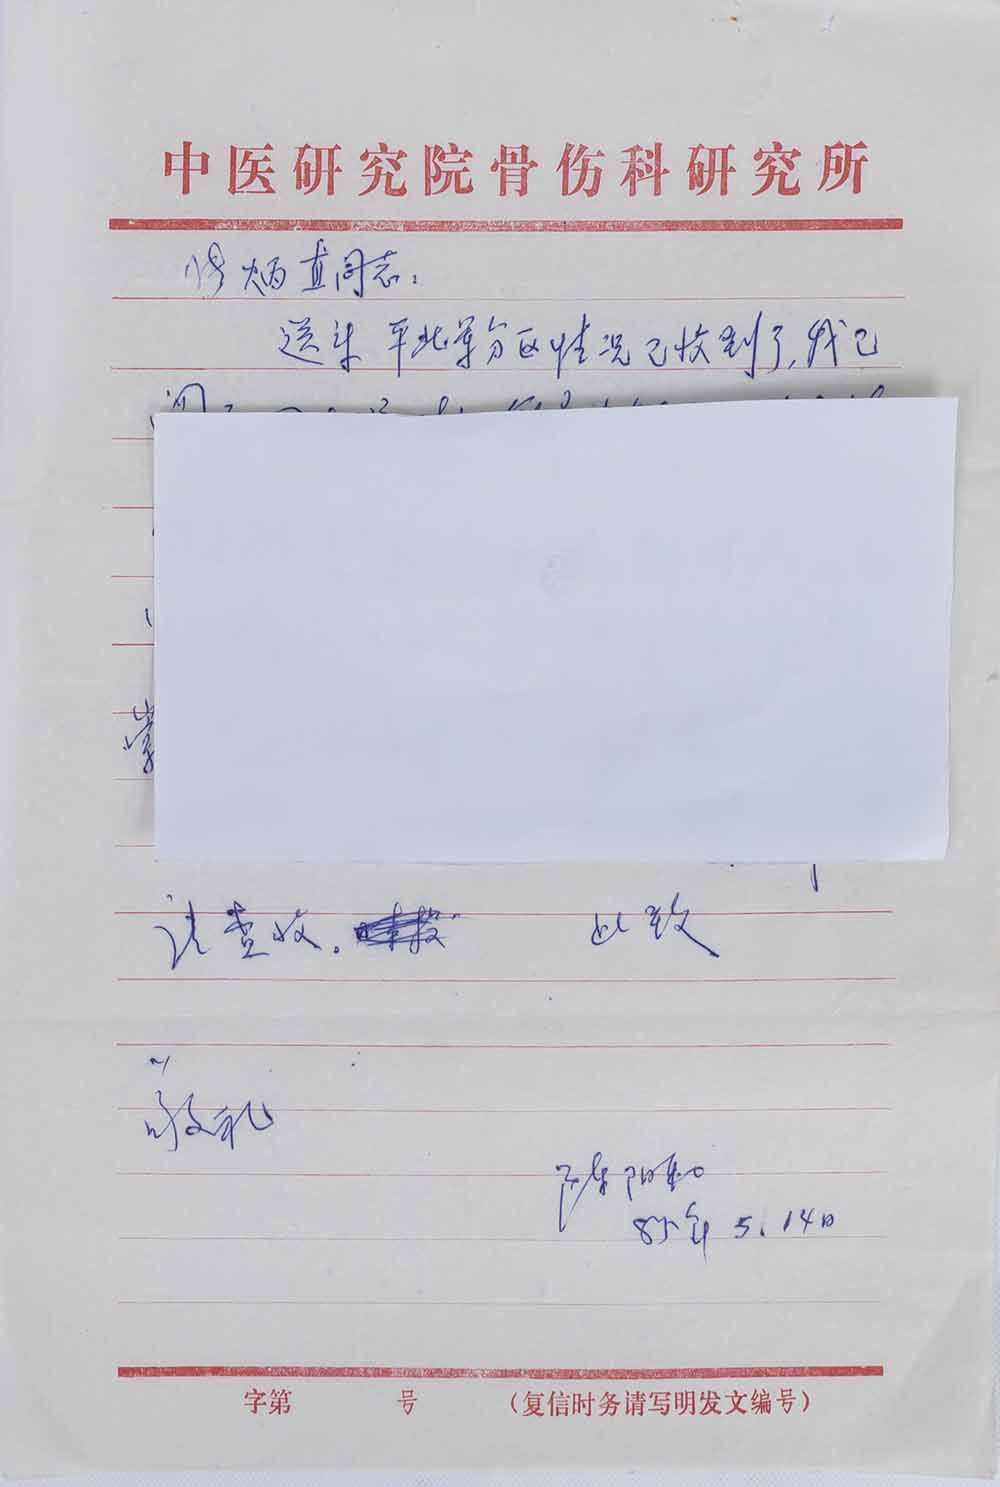 中医研究院骨伤科研究所
炳直同志：
送来平北军分区情况已收到了，我已
请查收。 此致
敬礼
陈阳和
85年5.14日
字第 号 （复信时务请写明发文编号）